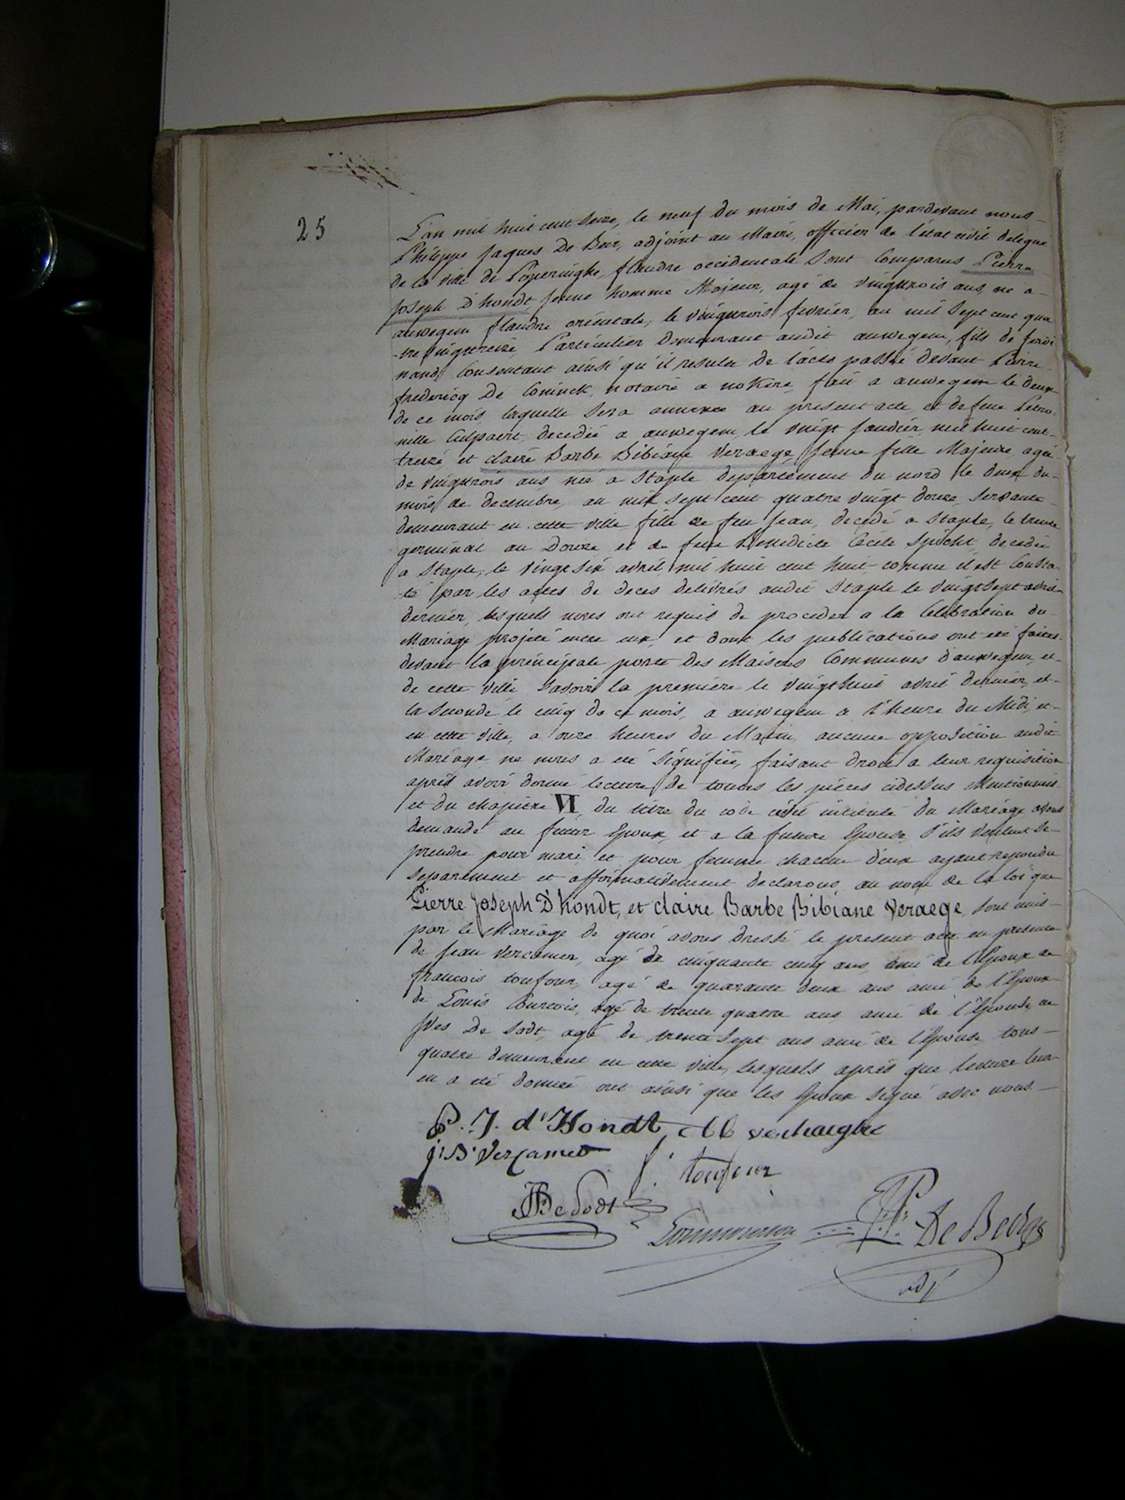 25
L'an mil huit cent seize, le neuf du mois de Mai, pardevant nous
Philippe Jaques De Bur, adjoint au Maire, officier de l'état civil delegué
de la ville de Poperinghe, flandre occidentale Sont Comparus Pierre
Joseph D'hondt jeune homme Majeur, agé de vingtrois ans, né a
auwegem flandre orientale, le vingtrois fevrier, an mil Sept cent qua
-tre vingt treize Particulier demeurant audit auwegem, fils de ferdi
nand, Consentant ainsi qu'il resulte de l'acte passé devant Pierre
fredericq De Coninck, notaire a nokere, fait a auwegem le deux
de ce mois laquelle Sera annexée au present acte, et de feue Petro
nille Culpaert, decedée a auwegem, le vingt Janvier mil huit cent
treize et claire Barbe Bibiane Veraege, Jeune fille Majeure agée
de vingtrois ans née a Staple departement du nord le deux du
mois de decembre, an mil sept cent quatre vingt douze Servante
demeurant en cette ville fille de feu Jean, decedé a Staple, le trente
germinal an Douze et de feue Benedicte Cecile Spicht decedée
a Staple, le vingt Six avril mil huit cent huit comme il est Consta
-té par les actes de deces delivrés audit Staple le vingt Sept avril
dernier, lesquels nous ont requis de proceder a la Celebration du
Mariage projeté entre eux, et dont les publications ont été faites
devant la principale porte des Maisons Communes d'auwegem, et
de cette ville Savoir la premiere le vingt huit avril dernier, et
la Seconde le cinq de ce mois, a auwegem a l'heure du Midi, et
en cette ville, a onze heures du Matin, aucune opposition audit
Mariage ne nous a été Signifiée, faisant droit a leur requisition
après avoir donné lecture de toutes les pièces cidessus Mentionnées
et du chapitre VI, du titre du code civil intitulé du Mariage avons
demandé au futur Epoux, et a la future Epouse, S'ils veulent Se
prendre pour mari et pour femme chacun d'eux ayant repondu
Separement et affirmativement declarons, au nom de la loi que
Pierre Joseph D'hondt, et claire Barbe Bibiane Veraege Sont unis
par le Mariage de quoi avons dressé le present acte en presence
de Jean Vercamer, agé de cinquante cinq ans ami de l'Epoux de
francois toufour, agé de quarante deux ans ami de l'Epoux
de Louis agé de trente quatre ans ami de l'Epouse, de
De Sodt, agé de trente Sept ans ami de l'Epouse tous
quatre demeurant en cette ville, lesquels après que lecture leur
en a été donnée ont ainsi que les Epoux Signé avec nous
P. J. d'Hondt
f. toufour
De Sodt
adj